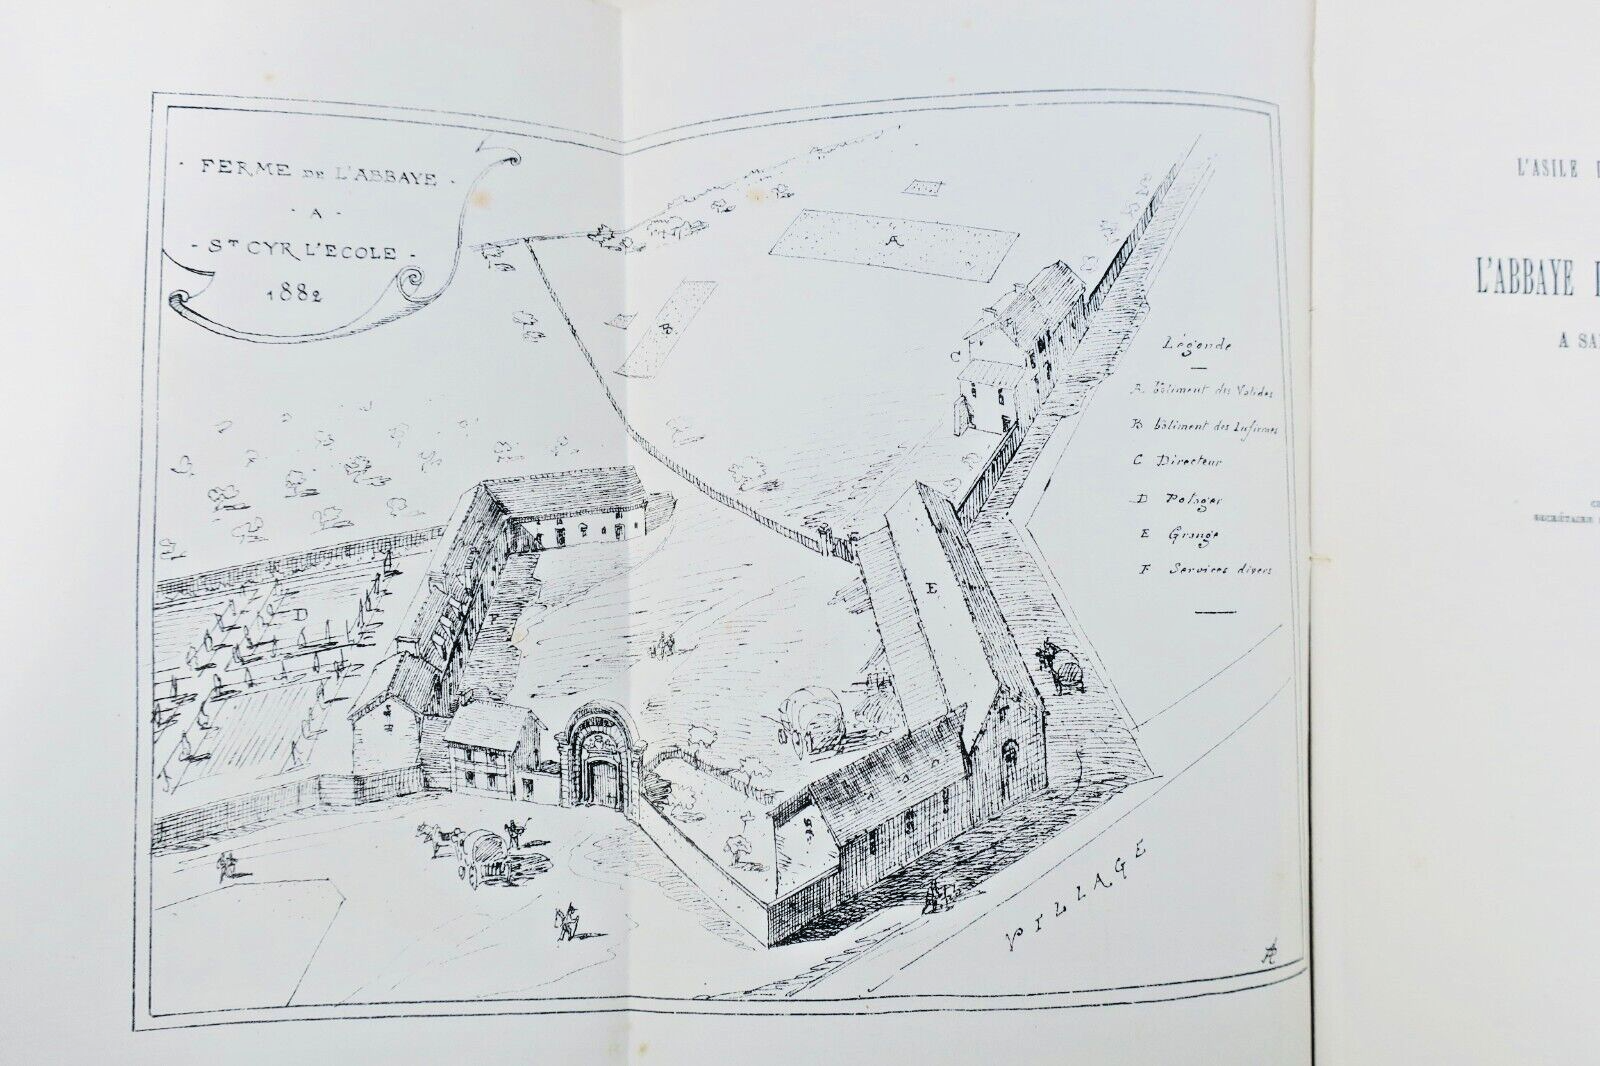 - FERME DE L'ABBAYE -
- A -
- ST CYR L'ECOLE -
1882
A
B
C
D
E
F
Légende
A bâtiment des Valides
B bâtiment des Infirmes
C Directeur
D Potager
E Grange
F Services divers
VILLAGE
L'ASILE
L'ABBAYE
A SA
SECRÉTAIRE